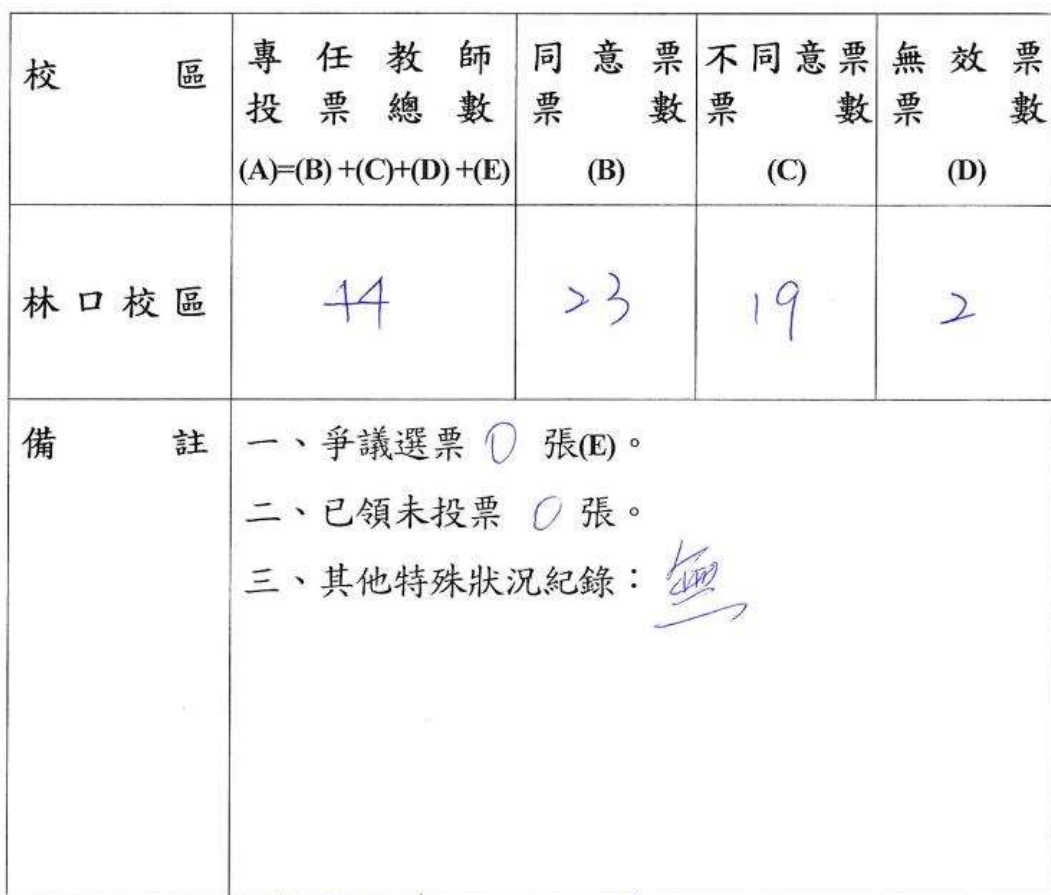 校區
專任教師
投票總數
(A)=(B)+(C)+(D)+(E)
同意票
票數
(B)
不同意票
票數
(C)
無效票
票數
(D)
林口校區
44
23
19
2
備註
一、爭議選票 0 張(E)。
二、已領未投票 0 張。
三、其他特殊狀況紀錄：無